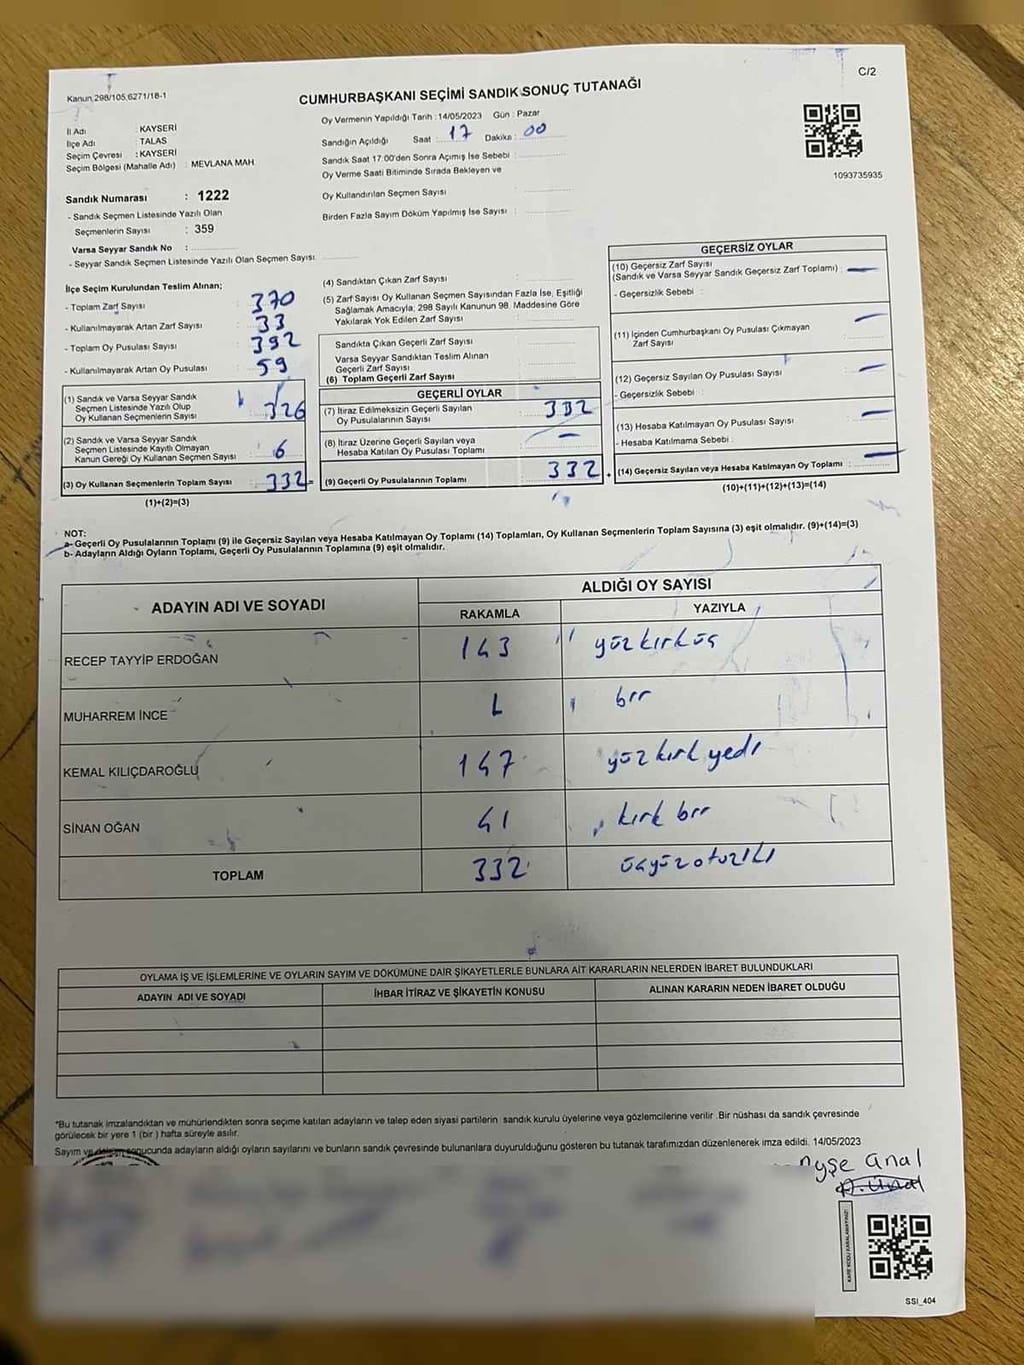 C/2
Kanun 298/105,6271/18-1
CUMHURBAŞKANI SEÇİMİ SANDIK SONUÇ TUTANAĞI
İl Adı : KAYSERİ
İlçe Adı : TALAS
Seçim Çevresi : KAYSERİ
Seçim Bölgesi (Mahalle Adı) : MEVLANA MAH.
Sandık Numarası : 1222
- Sandık Seçmen Listesinde Yazılı Olan
Seçmenlerin Sayısı : 359
Varsa Seyyar Sandık No :
- Seyyar Sandık Seçmen Listesinde Yazılı Olan Seçmen Sayısı:
Oy Vermenin Yapıldığı Tarih : 14/05/2023 Gün : Pazar
Sandığın Açıldığı Saat : 17 Dakika : 00
Sandık Saat 17:00'den Sonra Açımış İse Sebebi :
Oy Verme Saati Bitiminde Sırada Bekleyen ve
Oy Kullandırılan Seçmen Sayısı :
Birden Fazla Sayım Döküm Yapılmış İse Sayısı :
1093735935
İlçe Seçim Kurulundan Teslim Alınan;
- Toplam Zarf Sayısı : 370
- Kullanılmayarak Artan Zarf Sayısı : 33
- Toplam Oy Pusulası Sayısı : 392
- Kullanılmayarak Artan Oy Pusulası : 59
(1) Sandık ve Varsa Seyyar Sandık
Seçmen Listesinde Yazılı Olup
Oy Kullanan Seçmenlerin Sayısı : 326
(2) Sandık ve Varsa Seyyar Sandık
Seçmen Listesinde Kayıtlı Olmayan
Kanun Gereği Oy Kullanan Seçmen Sayısı : 6
(3) Oy Kullanan Seçmenlerin Toplam Sayısı : 332=
(1)+(2)=(3)
(4) Sandıktan Çıkan Zarf Sayısı :
(5) Zarf Sayısı Oy Kullanan Seçmen Sayısından Fazla İse, Eşitliği
Sağlamak Amacıyla; 298 Sayılı Kanunun 98. Maddesine Göre
Yakılarak Yok Edilen Zarf Sayısı :
Sandıkta Çıkan Geçerli Zarf Sayısı :
Varsa Seyyar Sandıktan Teslim Alınan
Geçerli Zarf Sayısı :
(6) Toplam Geçerli Zarf Sayısı :
GEÇERLİ OYLAR
(7) İtiraz Edilmeksizin Geçerli Sayılan
Oy Pusulasının Sayısı : 332
(8) İtiraz Üzerine Geçerli Sayılan veya
Hesaba Katılan Oy Pusulası Toplamı : –
(9) Geçerli Oy Pusulalarının Toplamı : 332
GEÇERSİZ OYLAR
(10) Geçersiz Zarf Sayısı
(Sandık ve Varsa Seyyar Sandık Geçersiz Zarf Toplamı) : –
- Geçersizlik Sebebi :
(11) İçinden Cumhurbaşkanı Oy Pusulası Çıkmayan
Zarf Sayısı : –
(12) Geçersiz Sayılan Oy Pusulası Sayısı : –
- Geçersizlik Sebebi :
(13) Hesaba Katılmayan Oy Pusulası Sayısı : –
- Hesaba Katılmama Sebebi :
(14) Geçersiz Sayılan veya Hesaba Katılmayan Oy Toplamı : –
(10)+(11)+(12)+(13)=(14)
NOT:
a- Geçerli Oy Pusulalarının Toplamı (9) ile Geçersiz Sayılan veya Hesaba Katılmayan Oy Toplamı (14) Toplamları, Oy Kullanan Seçmenlerin Toplam Sayısına (3) eşit olmalıdır. (9)+(14)=(3)
b- Adayların Aldığı Oyların Toplamı, Geçerli Oy Pusulalarının Toplamına (9) eşit olmalıdır.
ADAYIN ADI VE SOYADI ALDIĞI OY SAYISI
RAKAMLA YAZIYLA
RECEP TAYYİP ERDOĞAN 143 yüz kırk üç
MUHARREM İNCE 1 bir
KEMAL KILIÇDAROĞLU 147 yüz kırk yedi
SİNAN OĞAN 41 kırk bir
TOPLAM 332 üçyüz otuz iki
OYLAMA İŞ VE İŞLEMLERİNE VE OYLARIN SAYIM VE DÖKÜMÜNE DAİR ŞİKAYETLERLE BUNLARA AİT KARARLARIN NELERDEN İBARET BULUNDUKLARI
ADAYIN ADI VE SOYADI İHBAR İTİRAZ VE ŞİKAYETİN KONUSU ALINAN KARARIN NEDEN İBARET OLDUĞU
*Bu tutanak imzalandıktan ve mühürlendikten sonra seçime katılan adayların ve talep eden siyasi partilerin sandık kurulu üyelerine veya gözlemcilerine verilir .Bir nüshası da sandık çevresinde
görülecek bir yere 1 (bir) hafta süreyle asılır.
Sayım ve döküm sonucunda adayların aldığı oyların sayılarını ve bunların sandık çevresinde bulunanlara duyurulduğunu gösteren bu tutanak tarafımızdan düzenlenerek imza edildi. 14/05/2023
Ayşe Ünal
A. Ünal
KARE KODU KARALAMAYINIZ!
SSI_404